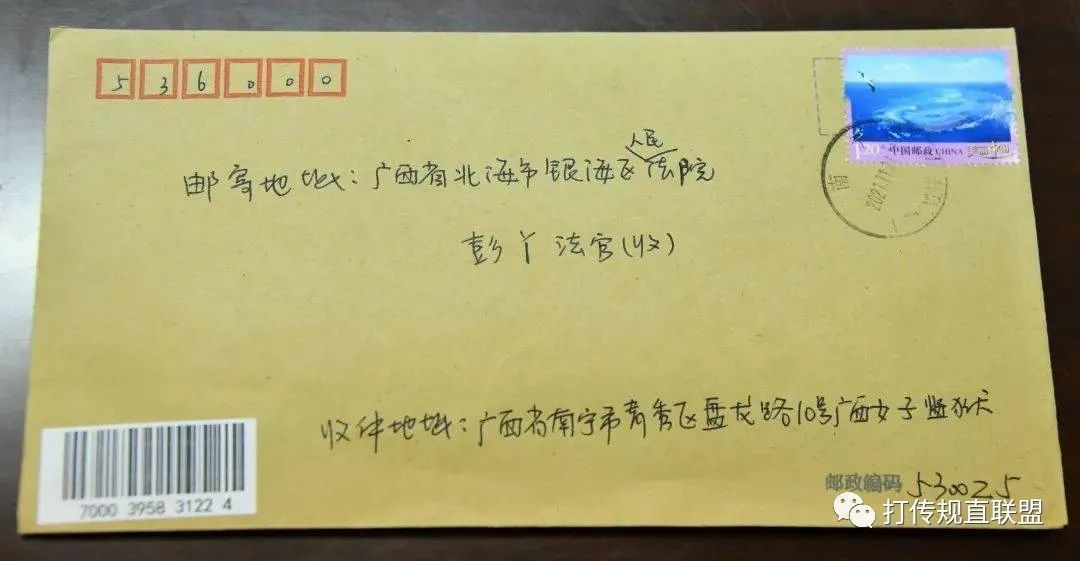 536000
1.20元 中国邮政 CHINA 美丽中国
人民
邮寄地址：广西省北海市银海区法院
南
2021.11
彭丫法官(收)
收件地址：广西省南宁市青秀区盘龙路10号广西女子监狱
7000 3958 3122 4
邮政编码 530025
打传规直联盟